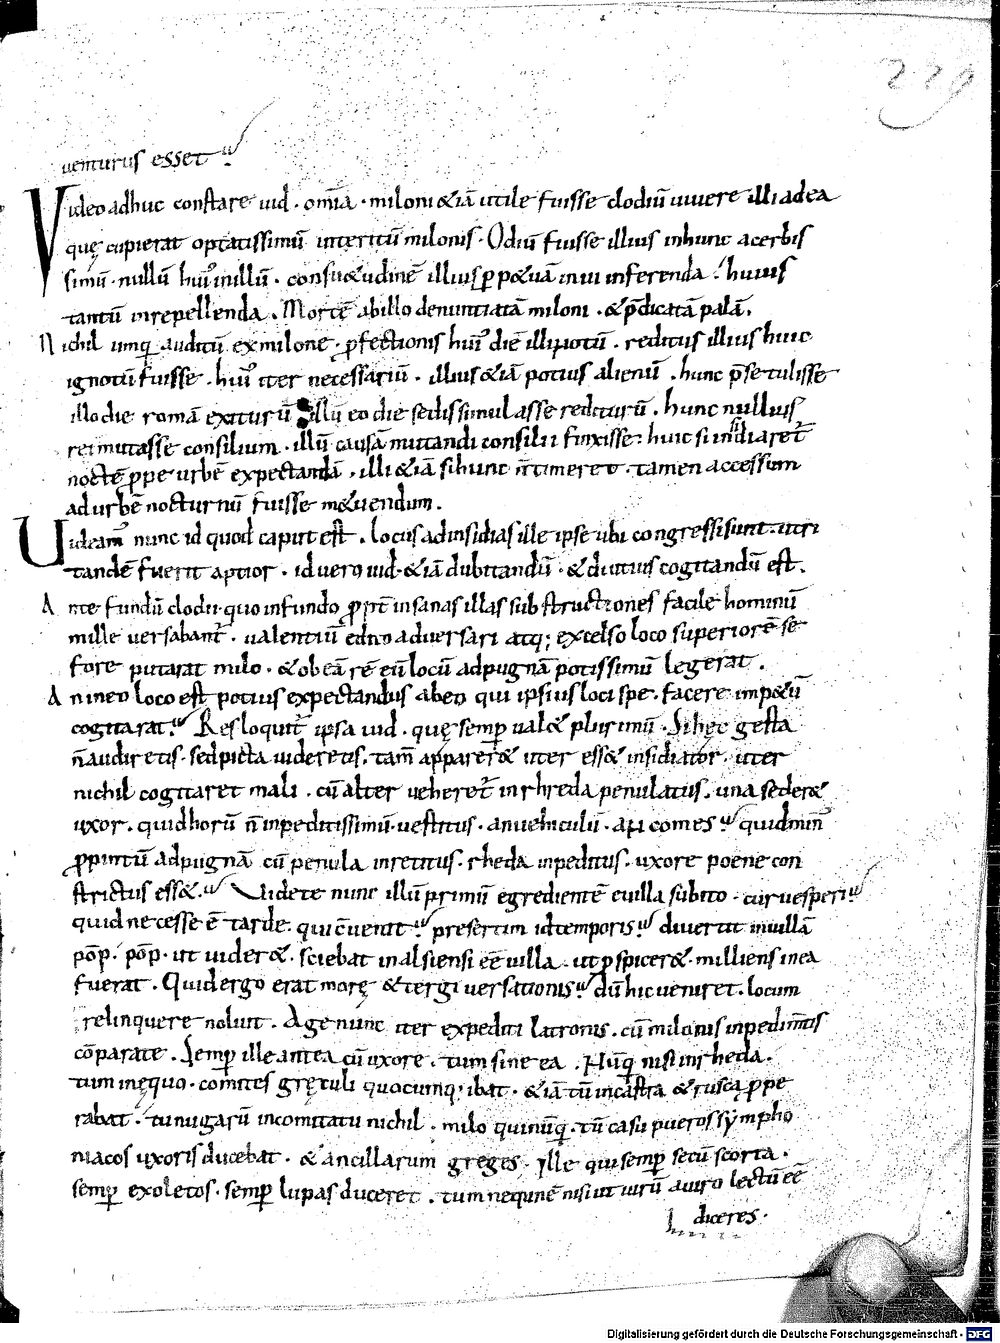 229
uenturus esset
Video adhuc constare iud. omīa. miloni &iā utile fuisse clodiū uiuere illi adea
quę cupierat optatissimū interitū milonis. Odiū fuisse illius inhunc acerbis
simū. nullū hui' inillū. consu&udinē illius pp&uā inui inferenda. huius
tantū inrepellenda. Mortē abillo denuntiatā miloni. &p̄dicatā palā.
Nichil umq; auditū exmilone. pfectionis hui' diē illi notū. reditus illius huic
ignotū fuisse. hui' iter necessariū. illius &iā potius alienū. hunc p̄se tulisse
illo die romā exiturū illū eo die se dissimulasse rediturū. hunc nullius
rei mutasse consilium. illū causā mutandi consilii finxisse. huic si insidiaret
noctē ppe urbē expectandā. illi &iā si hunc n̄ timeret. tamen accessum
ad urbē nocturnū fuisse m&uendum.
Uideam' nunc id quod caput est. locus ad insidias ille ipse ubi congressi sunt. utri
tandē fuerit aptior. id uero iud. &iā dubitandū. &diutius cogitandū est.
Ante fundū clodii. quo infundo ppt insanas illas substructiones facile hominū
mille uersabant. ualentiū edito aduersari atq; excelso loco superiorē se
fore putarat milo. &ob eā rē eū locū adpugnā potissimū legerat.
An ineo loco est potius expectandus abeo qui ipsius loci spe. facere imp&ū
cogitarat. Res loquit ipsa iud. quę semp ual& plurimū. Si hęc gesta
n̄ audiretis. sed picta uideretis. tam̄ apparer& uter ess& insidiator. uter
nichil cogitaret mali. cū alter ueheret inrheda penulatus. una seder&
uxor. quid horū n̄ inpeditissimū. uestitus. an uehiculū. an comes
ppintū adpugnā cū penula inretitus. rheda inpeditus. uxore poene con
strictus ess&. Videte nunc illū primū egredientē euilla subito. cur uesperi
quid necesse ē tarde. qui c̄uenit presertim id temporis diuertit inuillā
pōp. pōp. ut uider&. sciebat in alsiensi eē uilla. ut pspicer&. milliens in ea
fuerat. Quid ergo erat morę & tergiuersationis dū hic ueniret. locum
relinquere noluit. Age nunc iter expediti latronis. cū milonis inpedimtis
cōparate. Semp ille antea cū uxore. tum sine ea. Nūq; nisi inrheda.
tum inęquo. comites gręculi quocumq; ibat. &iā tū incastra &rusca ppe
rabat. tu nugarū incomitatu nichil. milo qui nūq;. tū casu pueros sympho
niacos uxoris ducebat. & ancillarum greges. Ille qui semp secū scorta.
semp exoletos. semp lupas duceret. tum neq;
diceres.
Digitalisierung gefördert durch die Deutsche Forschungsgemeinschaft - DFG